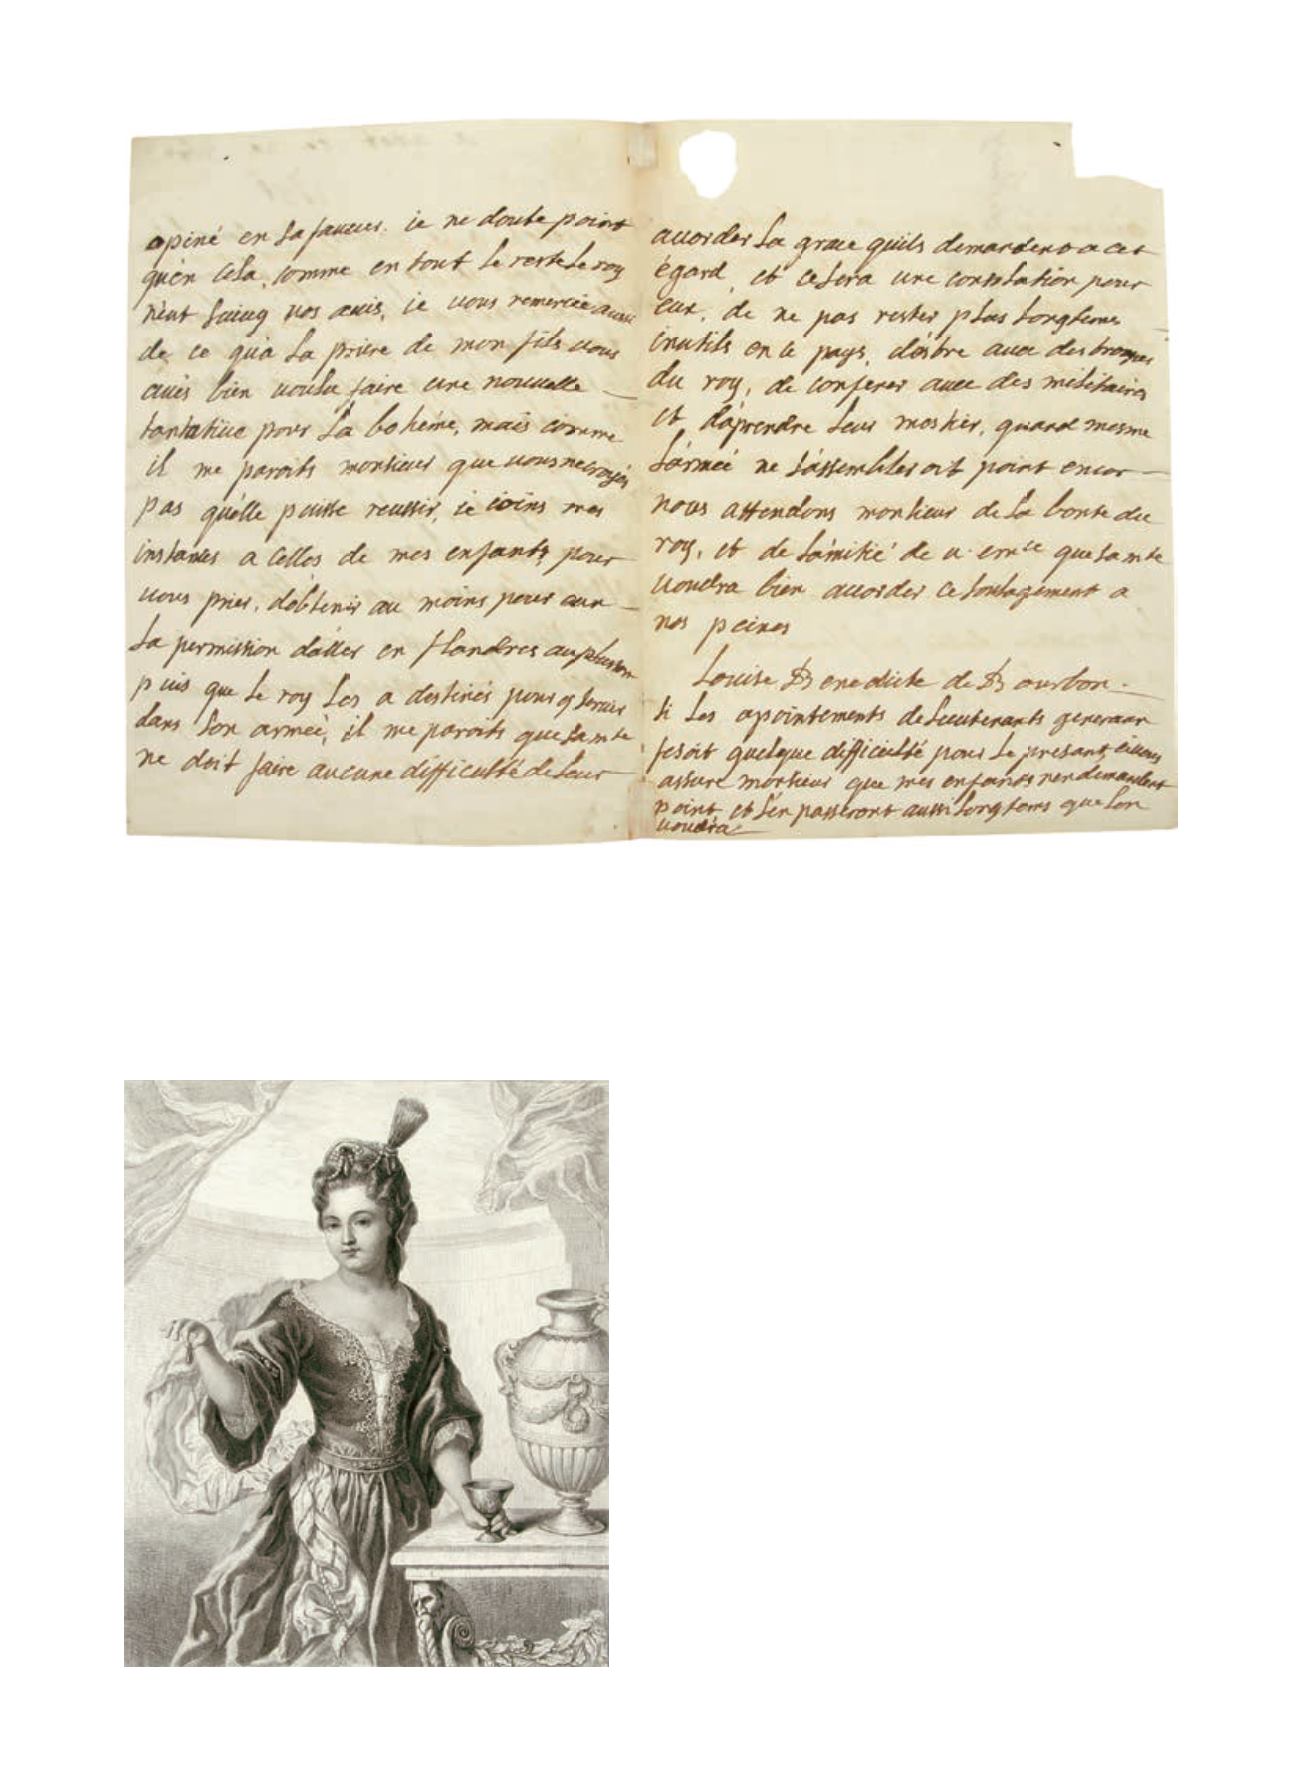 opiné en sa faueur. ie ne doute point
qu'en cela, comme en tout le reste le roy
n'eut suiuy vos auis, ie vous remercie aussi
de ce qu'a la priere de mon fils vous
aués bien voulu faire une nouuelle
tantatiue pour la boheme, mais comme
il me paroits monsieur que vous ne croyés
pas qu'elle puisse reussir, ie ioins mes
instances a celles de mes enfants pour
vous prier, d'obtenir au moins pour eux
la permission d'aller en flandres au plustost
puis que le roy les a destinés pour y seruir
dans son armeé, il me paroits que sa mte
ne doit faire aucune difficulté de leur
accorder la grace quils demandent a cet
égard, et ce sera une consolation pour
eux, de ne pas rester plus longtems
inutils en ce pays, d'estre auec des troupes
du roy, de conferer auec des militaires
et d'aprendre leur mestier, quand mesme
l'armeé ne s'assembleroit point encor
nous attendons monsieur de la bonté du
roy, et de l'amitié de v. emce que sa mte
voudra bien accorder ce soulagement a
nos peines
Louise Benedicte de Bourbon
si les apointements de lieutenants generaux
fesoit quelque difficulté pour le presant ie vous
assure monsieur que mes enfants n'en demandent
point et s'en passeront aussi longtems que l'on
voudra